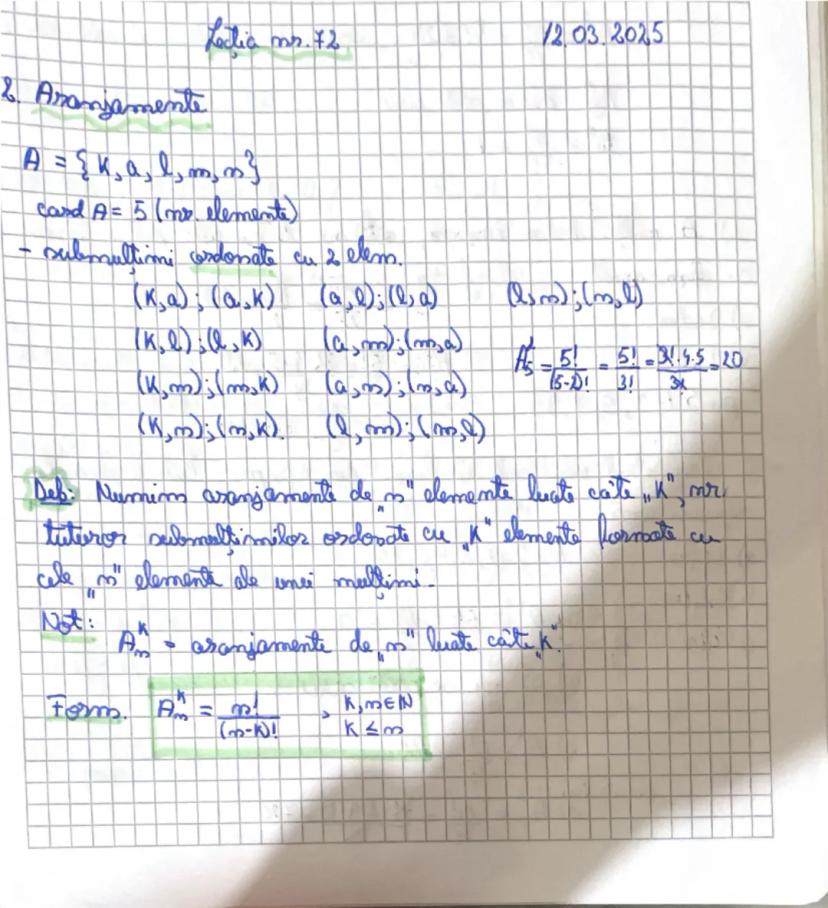 Lecția nr. 72 12.03.2025
2. Aranjamente
A = {K, a, l, m, n}
card A = 5 (nr. elemente)
- submulțimi ordonate cu 2 elem.
(K, a); (a, K) (a, l); (l, a) (l, n); (n, l)
(K, l); (l, K) (a, m); (m, a)
(K, m); (m, K) (a, n); (n, a)
(K, n); (n, K). (l, m); (m, l)
A₅² = 5!/(5-2)! = 5!/3! = 3!·4·5/3! = 20
Def: Numim aranjamente de „n" elemente luate câte „K", nr.
tuturor submulțimilor ordonate cu „K" elemente formate cu
cele „n" elemente ale unei mulțimi.
Not:
Aₙᴷ - aranjamente de „n" luate câte „K".
Form. Aₙᴷ = n!/(n-K)! , K, n ∈ ℕ
K ≤ n